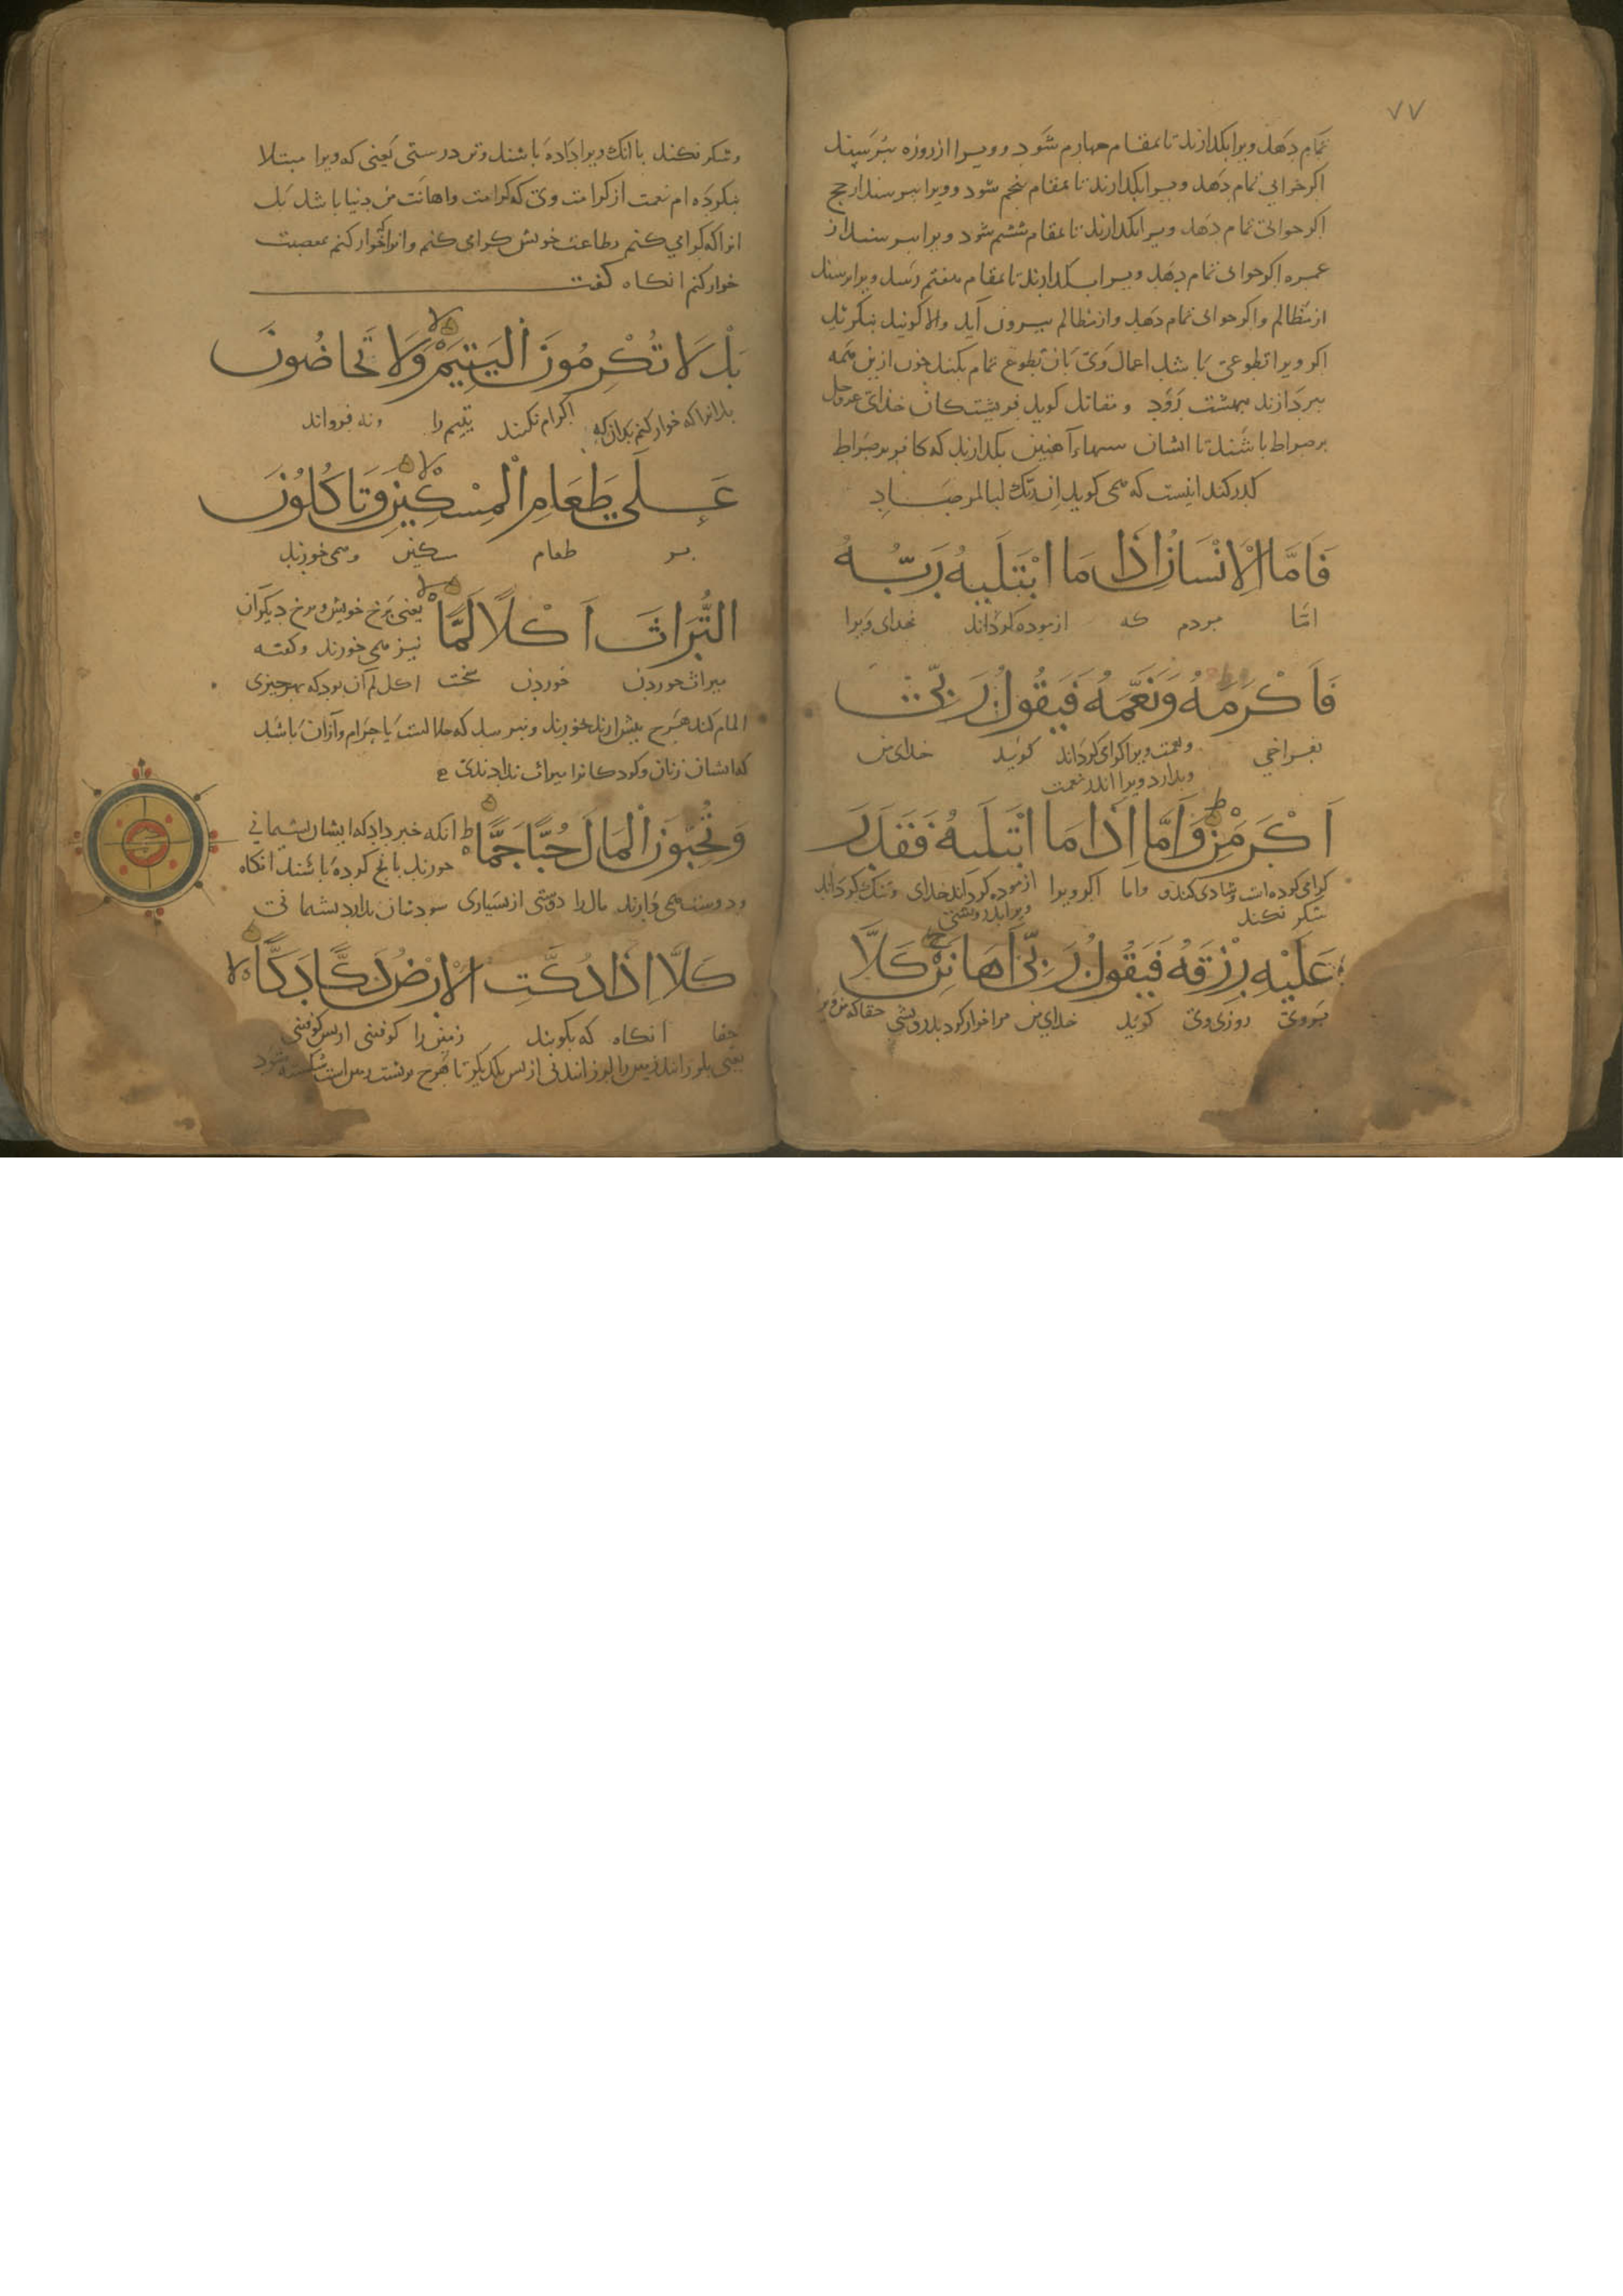 ٧٧
تمام دهد ویرا بکدارند تا بمقام چهارم شود و ویرا از روزه بپرسند
اکر جوابی تمام دهد ویرا بکدارند تا بمقام پنجم شود و ویرا بپرسند از حج
اکر جوابی تمام دهد ویرا بکدارند تا بمقام ششم شود ویرا بپرسند از
عمره اکر جوابی تمام دهد ویرا بکدارند تا بمقام هفتم رسد ویرا بپرسند
از مظالم و اکر جوابی تمام دهد و از مظالم بیرون آید والا کویند بنکرید
اکر ویرا تطوعی باشد اعمال وی بآن تطوع تمام بکنند چون ازین همه
بپردازند ببهشت رود و مقاتل کوید فریشتکان خدای عزوجل
بر صراط باشند تا ایشان آهنین بکدارند که کافر بر صراط
کدر کند اینست که همی کوید ان ربک لبالمرصاد
فَاَمَّا الْاِنْسَانُ اِذَا مَا ابْتَلَیهُ رَبُّهُ
امّا مردم که ازموده کرداند خدای ویرا
فَاَكْرَمَهُ وَنَعَّمَهُ فَيَقُولُ رَبِّی
بفراخی و نعمت ویرا کرامی کرداند کوید خدای من
وبدارد ویرا اندر نعمت
اَكْرَمَنِ وَاَمَّا اِذَا مَا ابْتَلَیهُ فَقَدَرَ
کرامی کرده است و شادی کند و واما اکر ویرا ازموده کرداند خدای و تنک کرداند
شکر نکند ویرا بدرویشی
عَلَيْهِ رِزْقَهُ فَيَقُولُ رَبِّی اَهَانَنِ كَلَّا
بر وی روزی وی کوید خدای من مرا خوار کرد بدرویشی حقا که من ویرا
و شکر نکند با انک ویرا داده باشند و تن درستی یعنی که ویرا مبتلا
بنکرده ام نعمت از کرامت وی که کرامت و اهانت من بدنیا باشد بک
انرا که کرامی کنم بطاعت خویش کرامی کنم وانرا که خوار کنم بمعصیت
خوار کنم انکاه کفت
بَلْ لَا تُكْرِمُونَ الْيَتِيمَ وَلَا تَحَاضُّونَ
بدانرا که خوار کنم بدان که اکرام نکنند یتیم را و نه فرواند
عَلَی طَعَامِ الْمِسْكِينِ وَتَاكُلُونَ
بر طعام مسکین و همی خورند
التُّرَاثَ اَكْلًا لَمًّا یعنی برخ خویش و برخ دیکران
نیز همی خورند و کفته
میراث خوردن خوردن سخت اکل لم آن بود که بهر چیزی
المام کند هرچ پیش ارند خورند و نپرسد که حلالست یا حرام و آزان باشد
که ایشان زنان و کودکانرا میراث ندادندی
وَتُحِبُّونَ الْمَالَ حُبًّا جَمًّا انکه خبر داد که ایشان پشیمانی
خورند بانچ کرده باشند انکاه
و دوست همی دارند مال را دوستی از بسیاری سودشان ندارد پشیمانی
كَلَّا اِذَا دُكَّتِ الْاَرْضُ دَكًّا دَكًّا
حقا انکاه که بکوبند زمین را کوفتنی از پس کوفتنی
یعنی بلرزانند زمین را لرزانیدنی از پس یکدیکر تا هرچ بر پشت زمین است شکسته شود